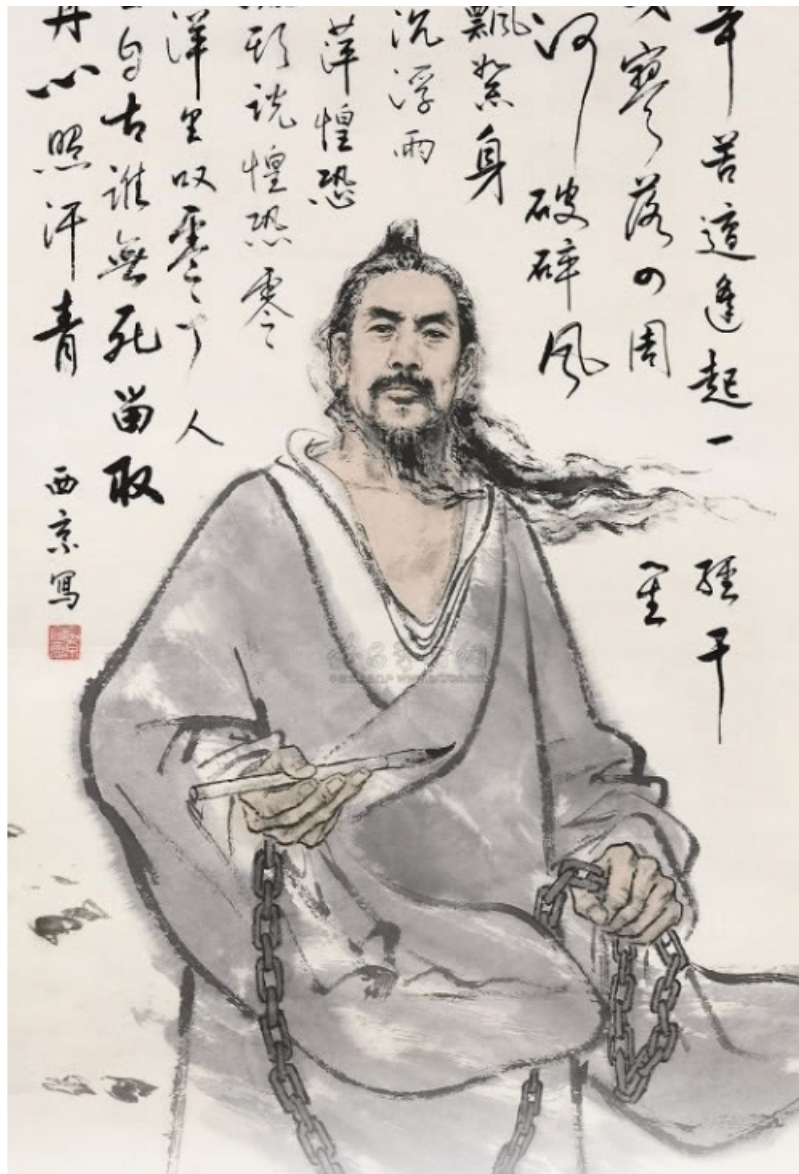 辛苦遭逢起一經干
戈寥落四周星
河破碎風
飄絮身
沉浮雨
萍惶恐
灘頭說惶恐零
洋里叹零丁人
生自古誰無死留取
丹心照汗青
西京寫